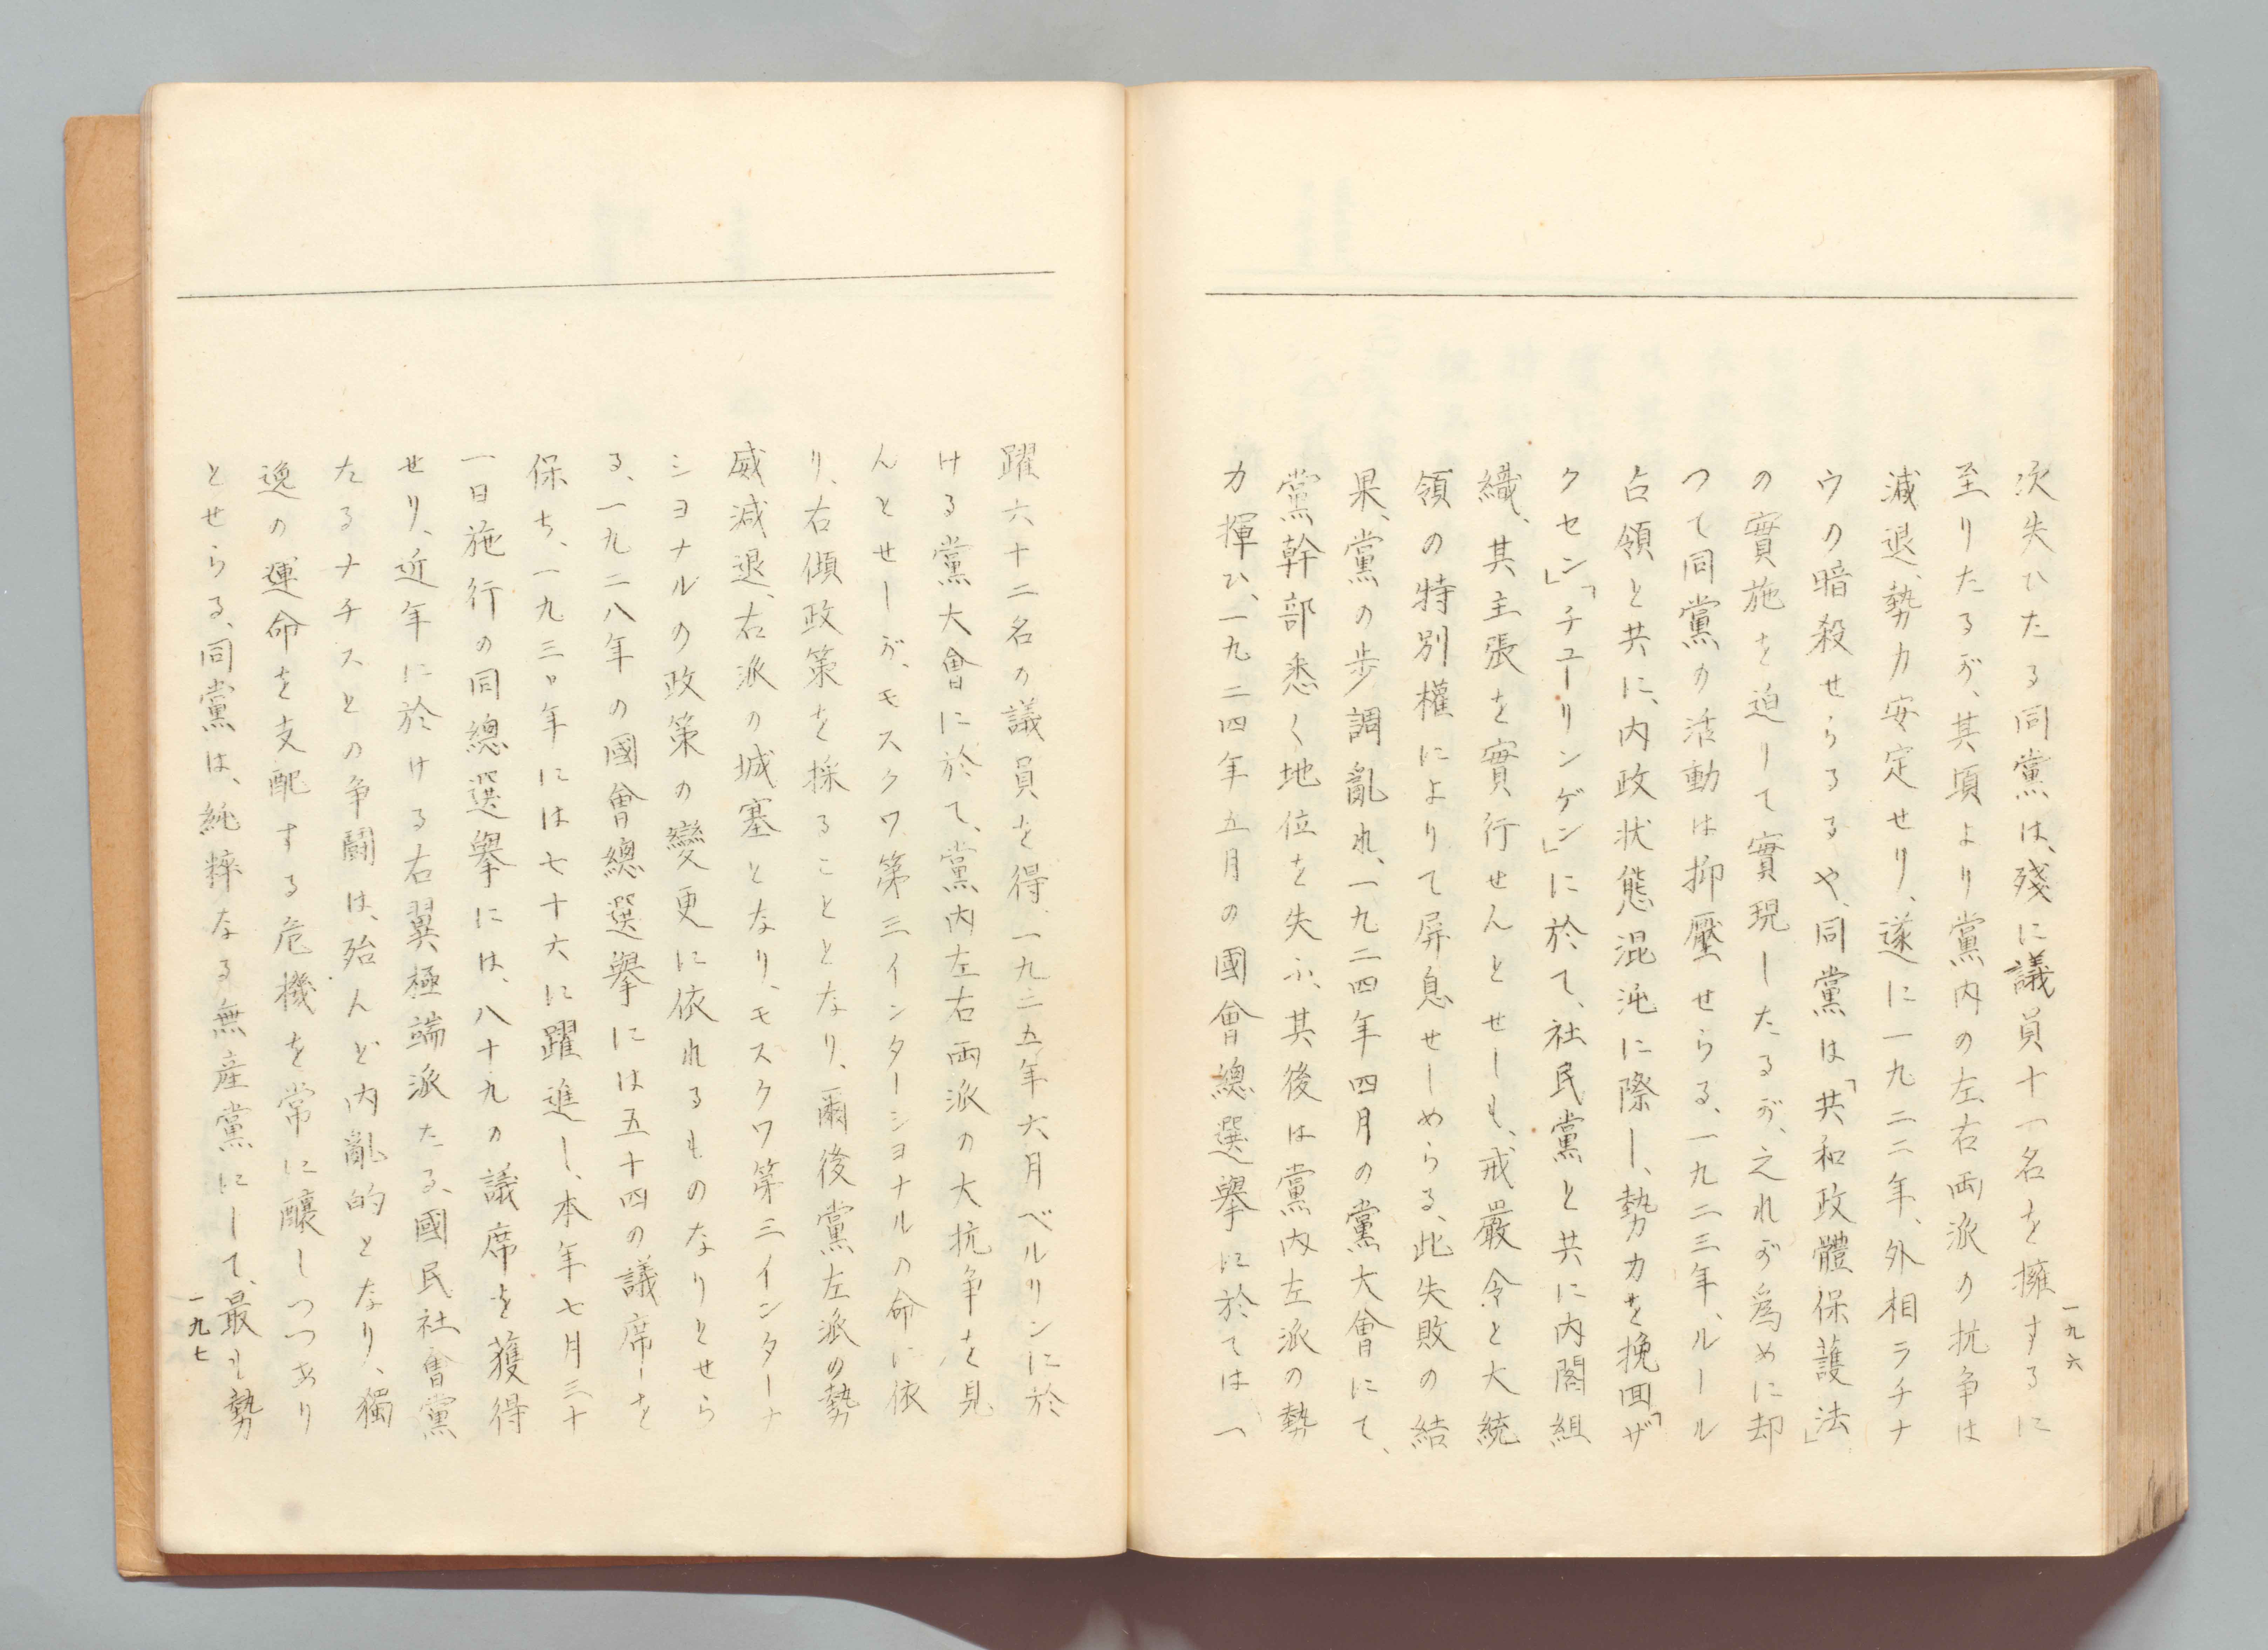 次失ひたる同黨は、殘に議員十一名を擁するに
至りたるが、其頃より黨内の左右両派の抗争は
減退、勢力安定せり、遂に一九二二年、外相ラチナ
ウの暗殺せらるるや、同黨は「共和政體保護法」
の實施を迫して實現したるが、之れが爲めに却
つて同黨の活動は抑壓せらる、一九二三年、ルール
占領と共に、内政状態混沌に際し、勢力を挽回「ザ
クセン」「チューリンゲン」に於て、社民黨と共に内閣組
織、其主張を實行せんとせしも、戒嚴令と大統
領の特別權によりて屏息せしめらる、此失敗の結
果、黨の歩調亂れ、一九二四年四月の黨大會にて、
黨幹部悉く地位を失ふ、其後は黨内左派の勢
力揮ひ、一九二四年五月の國會總選擧に於ては一
一九六
躍六十二名の議員を得、一九二五年六月ベルリンに於
ける黨大會に於て、黨内左右両派の大抗争を見
んとせしが、モスクワ第三インターシヨナルの命に依
り、右傾政策を採ることとなり、爾後黨左派の勢
威減退、右派の城塞となり、モスクワ第三インターナ
シヨナルの政策の變更に依れるものなりとせら
る、一九二八年の國會總選擧には五十四の議席を
保ち、一九三〃年には七十六に躍進し、本年七月三十
一日施行の同總選擧には、八十九の議席を獲得
せり、近年に於ける右翼極端派たる、國民社會黨
たるナチスとの争闘は、殆んど内亂的となり、獨
逸の運命を支配する危機を常に釀しつつあり
とせらる、同黨は、純粹なる無産黨にして、最も勢
一九七